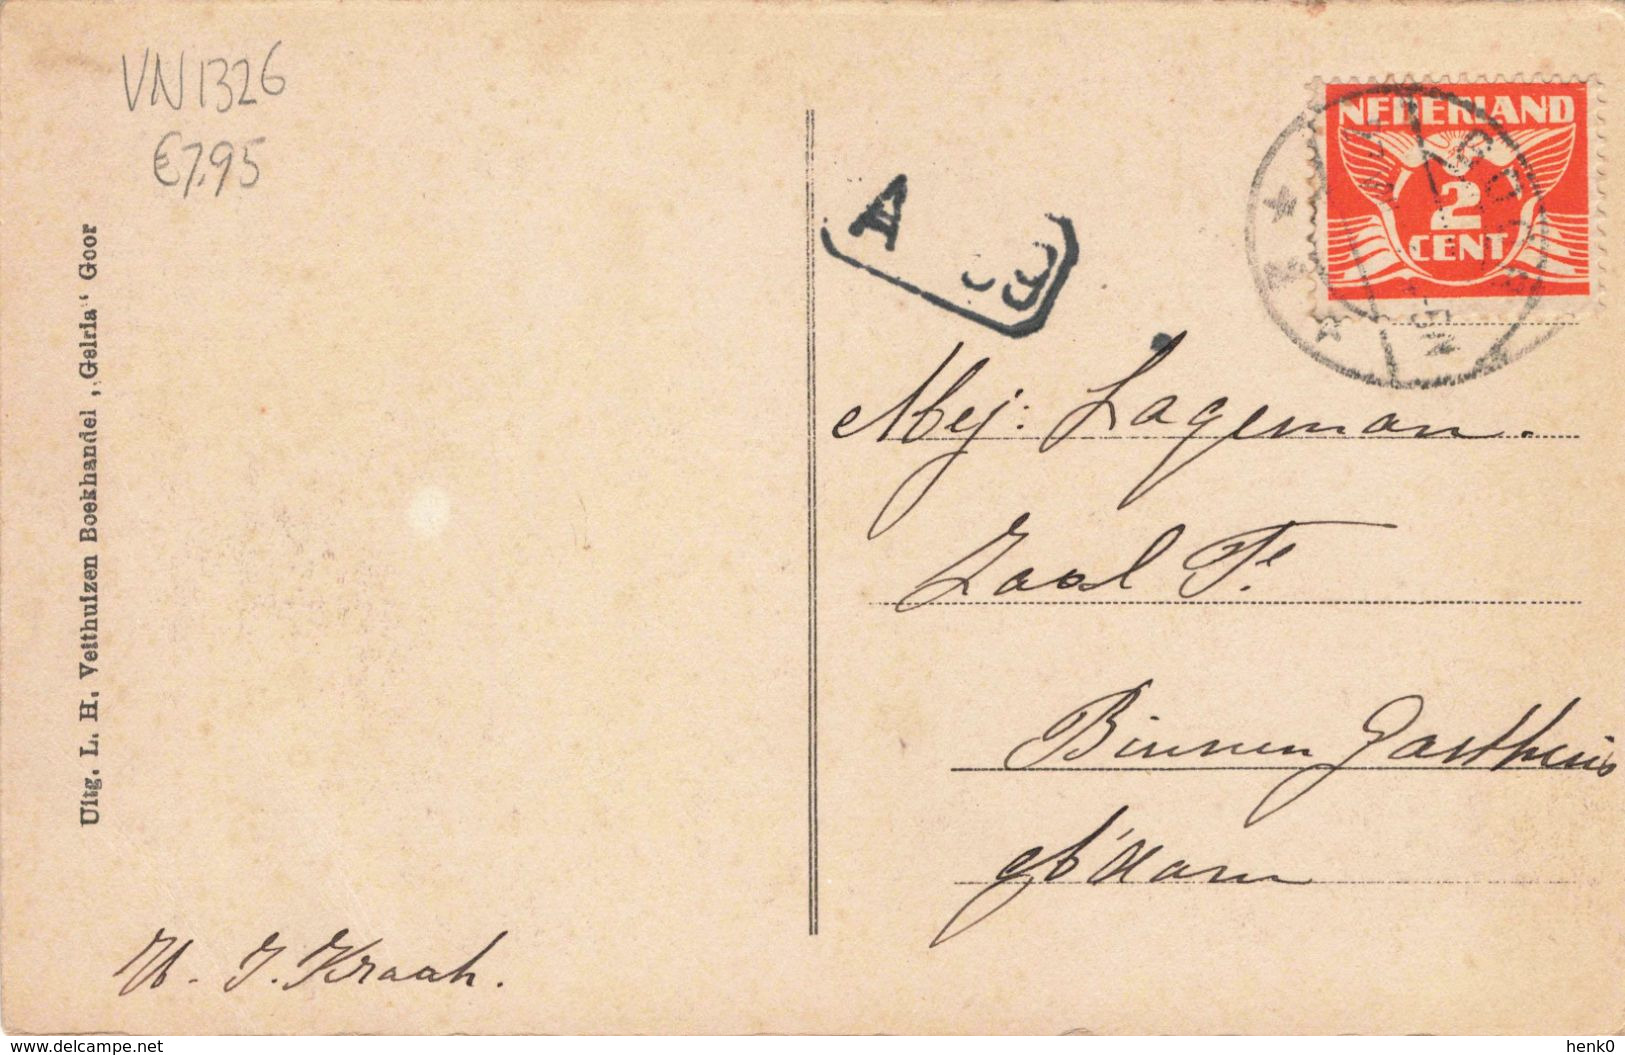 VN1326
€7.95
Uitg. L. H. Velthuizen Boekhandel „Gelria" Goor
NEDERLAND
2
CENT
GOOR
A
Mej: Lageman.
Zaal F.
Binnen Gasthuis
A'dam
J. Kraak.
www.delcampe.net
henk0